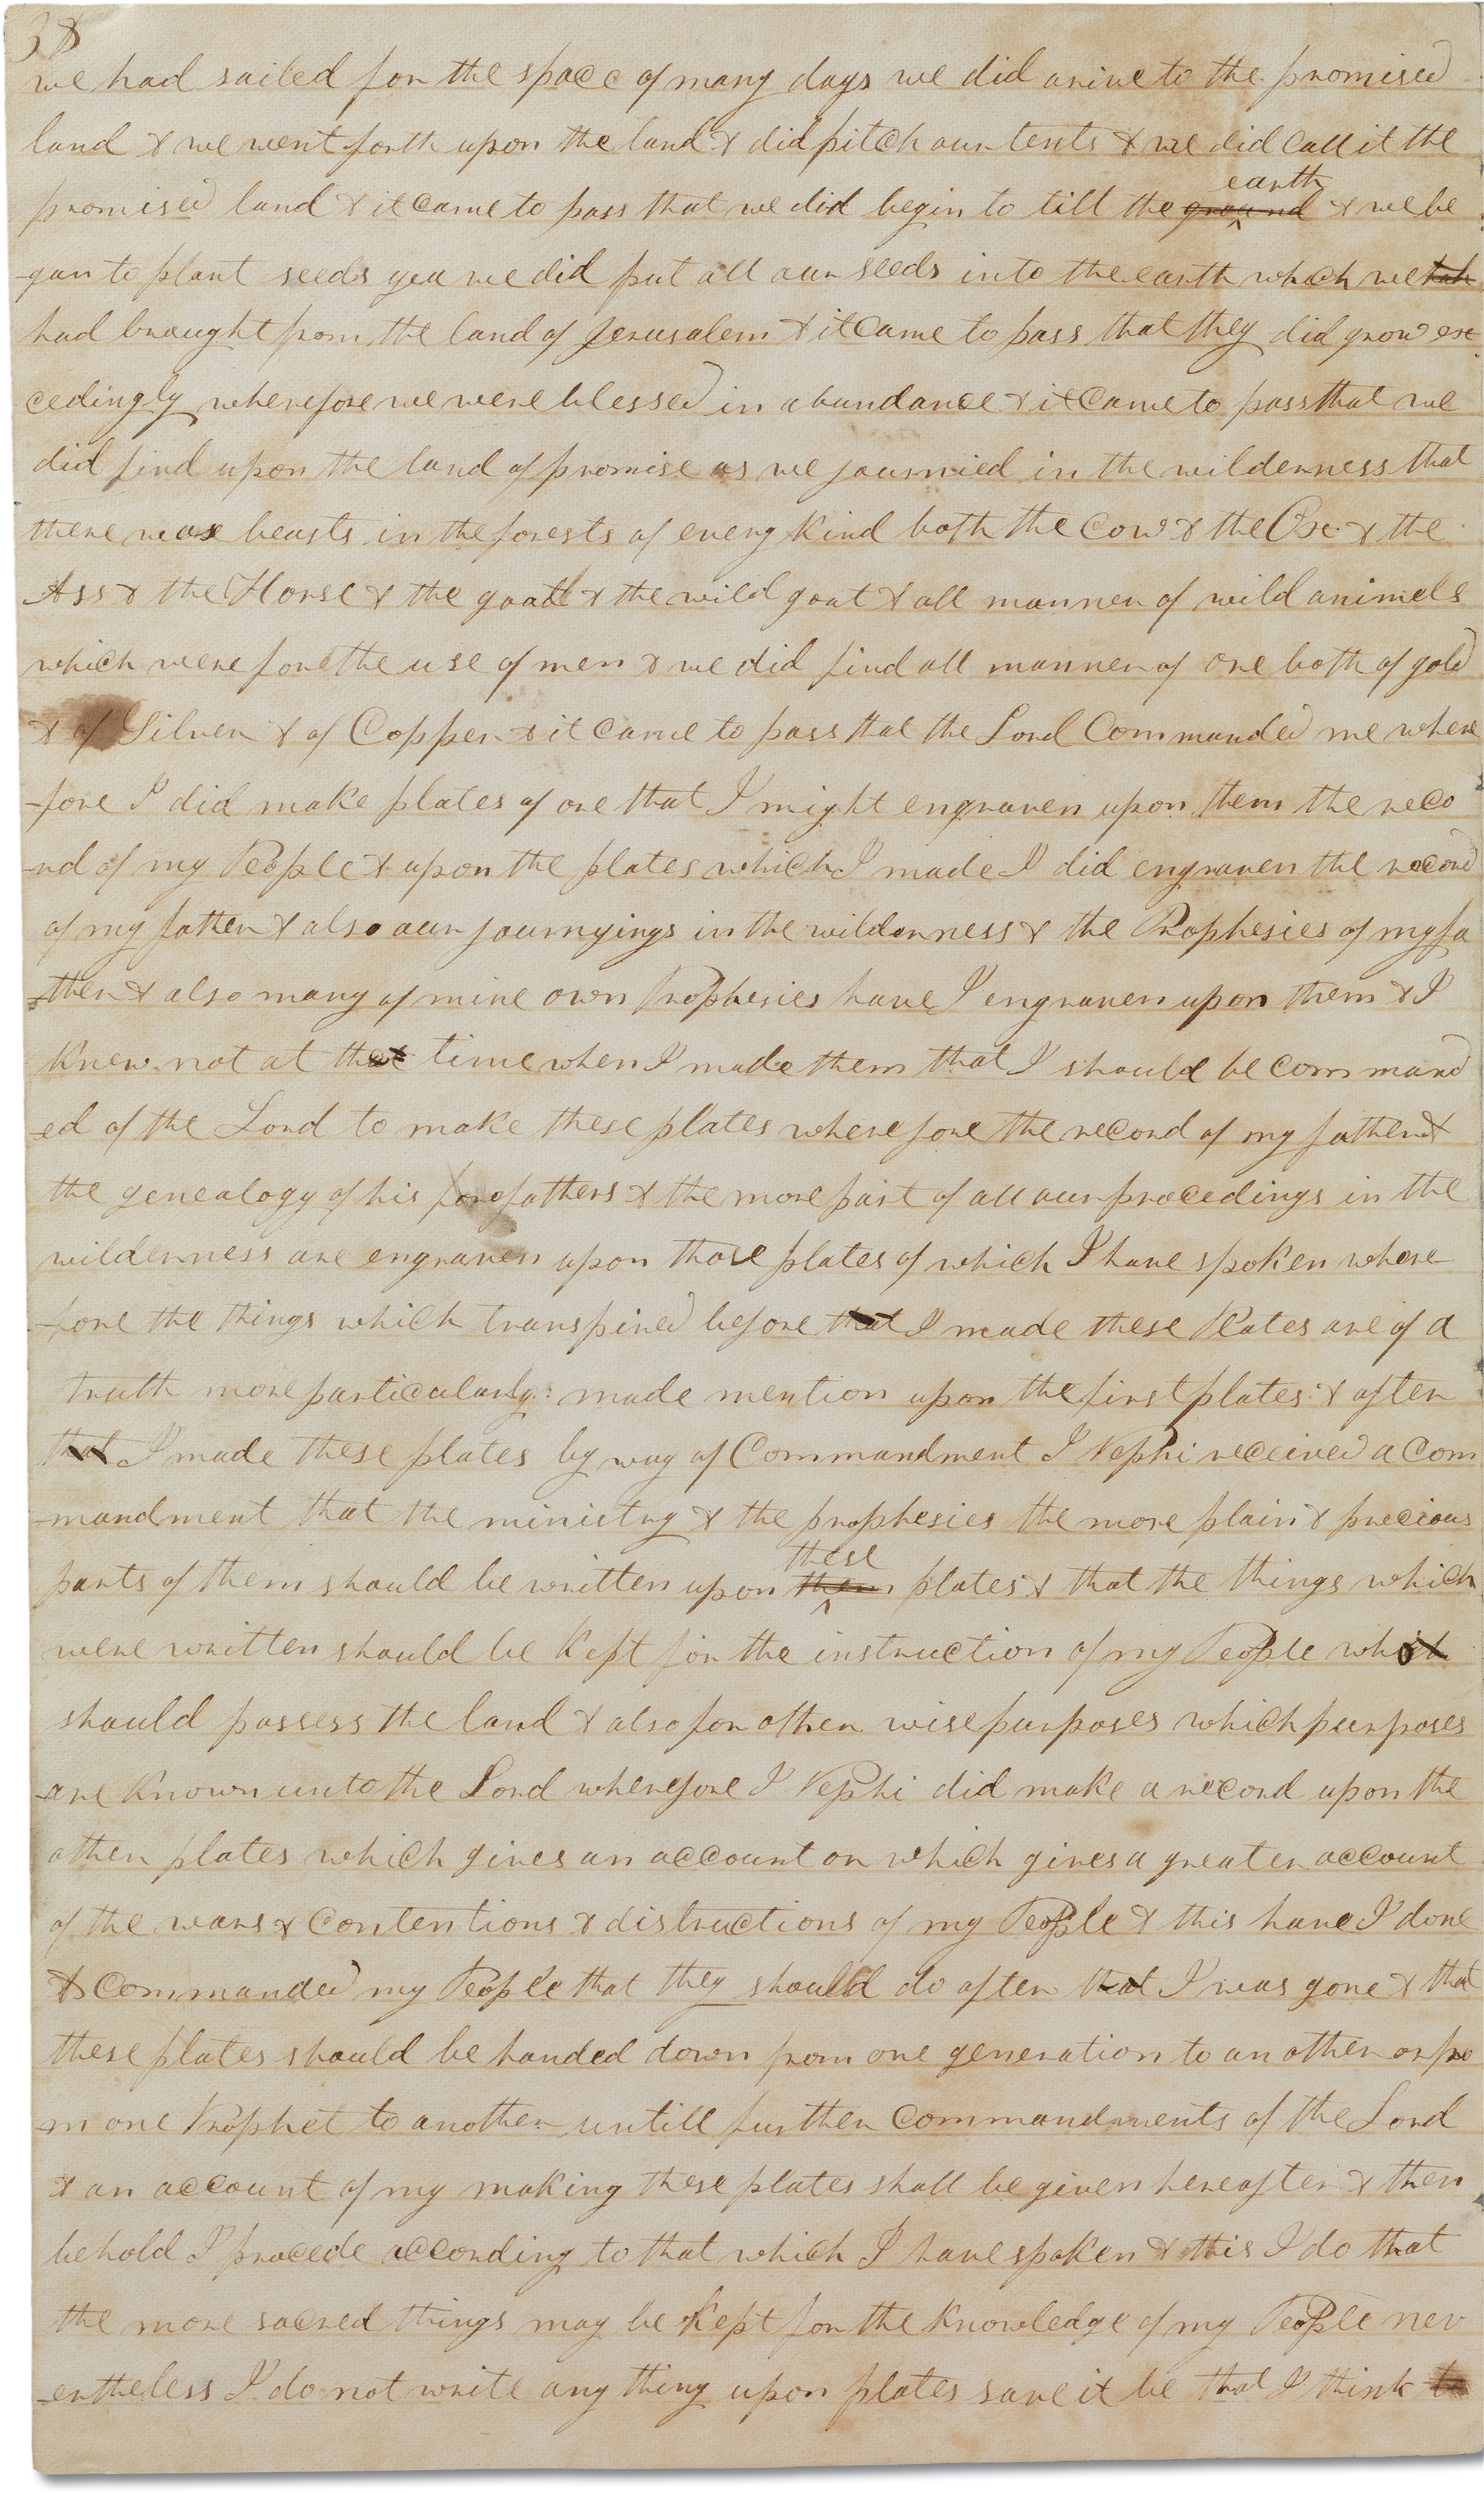 38
we had sailed for the space of many days we did arive to the promised
land & we went forth upon the land & did pitch our tents & we did call it the
earth
promised land & it came to pass that we did begin to till the ground & we be
-gan to plant seeds yea we did put all our seeds into the earth which we hah
had brought from the land of Jerusalem & it came to pass that they did grow ex
cedingly wherefore we were blessed in abundance & it came to pass that we
did find upon the land of promise as we journied in the wilderness that
there was beasts in the forests of every kind both the cow & the Ox & the
Ass & the Horse & the goat & the wild goat & all manner of wild animels
which were for the use of men & we did find all manner of ore both of gold
& of Silver & of Copper & it came to pass that the Lord Commanded me where
-fore I did make plates of ore that I might engraven upon them the reco
-rd of my People & upon the plates which I made I did engraven the record
of my father & also our journyings in the wilderness & the Prophesies of my fa
-ther & also many of mine own Prophesies have I engraven upon them & I
knew not at that time when I made them that I should be command
-ed of the Lord to make these plates wherefore the record of my father &
the genealogy of his forefathers & the more part of all our procedings in the
wilderness are engraven upon those plates of which I have spoken where
-fore the things which transpired before that I made these Plates are of a
truth more particularly: made mention upon the first plates: & after
that I made these plates by way of Commandment I Nephi received a Com
-mandment that the ministry & the prophesies the more plain & precious
these
parts of them should be written upon them plates & that the things which
were written should be kept for the instruction of my People which
should possess the land & also for other wise purposes which purposes
are known unto the Lord wherefore I Nephi did make a record upon the
other plates which gives an account or which gives a greater account
of the wars & contentions & distructions of my People & this have I done
& commanded my People that they should do after that I was gone & that
these plates should be handed down from one generation to another or fro
-m one Prophet to another untill further commandments of the Lord
& an account of my making these plates shall be given hereafter & then
behold I procede according to that which I have spoken & this I do that
the more sacred things may be kept for the knowledge of my People nev
-ertheless I do not write any thing upon plates save it be that I think to